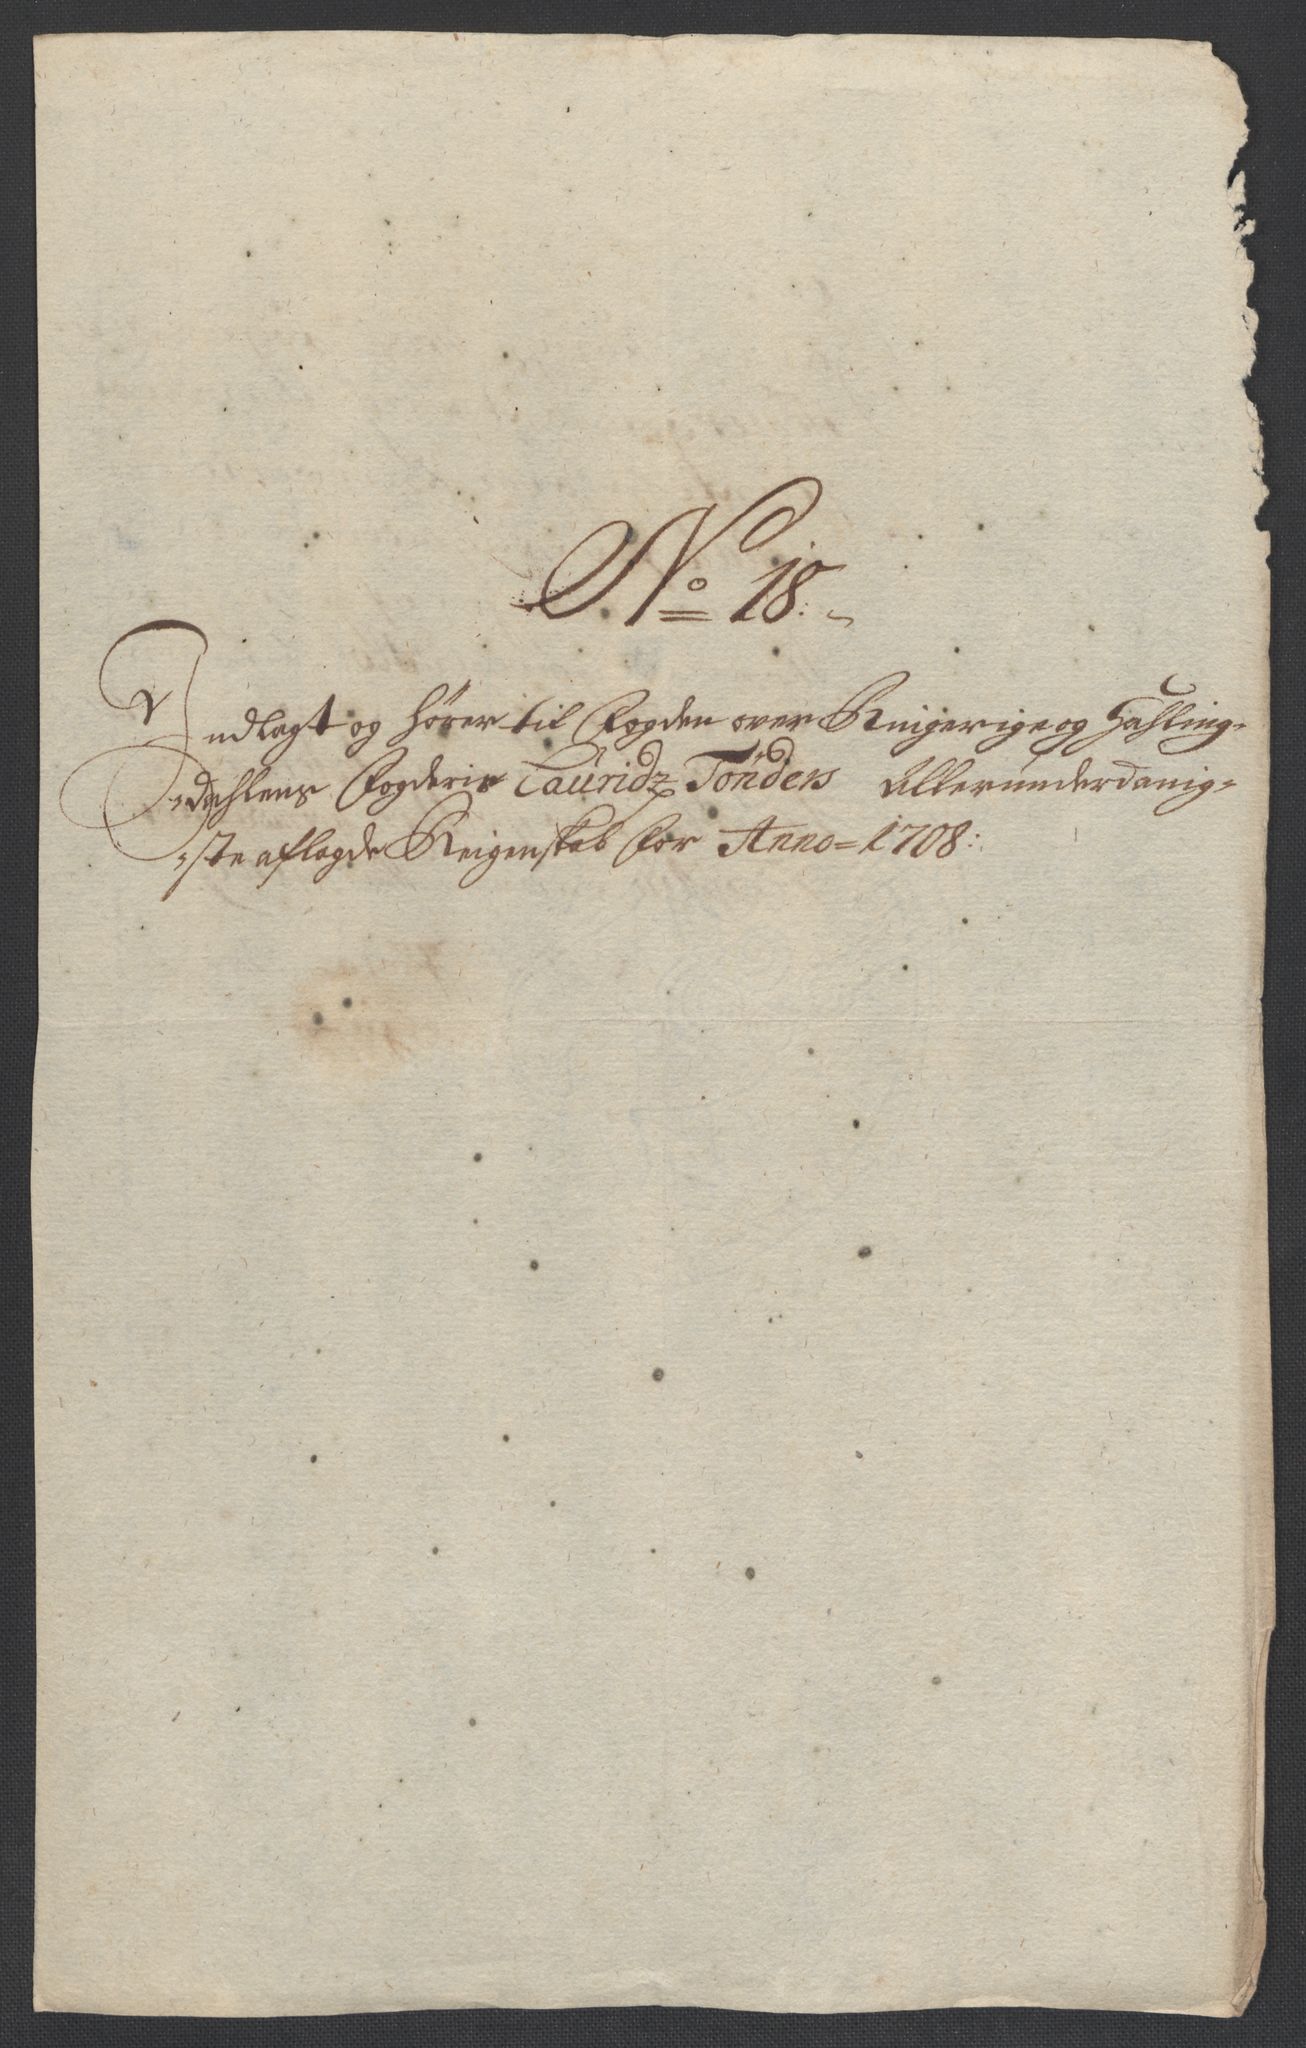 No 18.
Indlagt og hörer til Fogden over Ringerige og Hahling-
dahlens Fogderie Lauridz Tönders Allerunderdanig-
ste aflagde Reigenskab for Anno 1708: